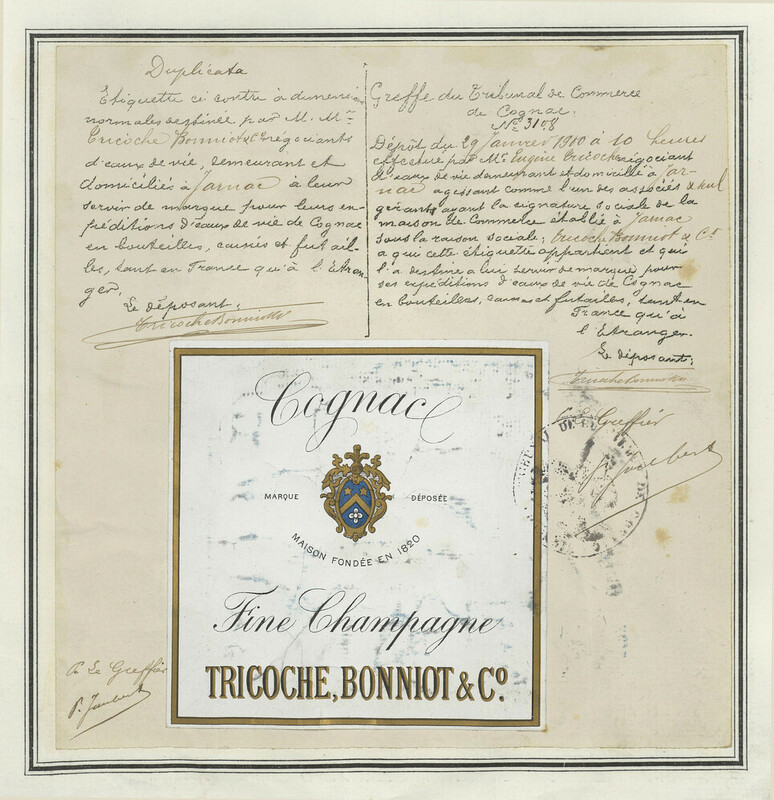 Duplicata
Etiquette ci contre à dimensions
normales destinée par M. Mrs
Tricoche Bonniot & Cie négociants
d'eaux de vie, demeurant et
domiciliés à Jarnac à leur
servir de marque pour leurs ex-
péditions d'eaux de vie de Cognac
en bouteilles, caisses et futail-
les, tant en France qu'à l'Etran-
ger.
Le déposant.
Tricoche Bonniot & Co
Greffe du Tribunal de Commerce
de Cognac.
No 3108
Dépôt du 29 Janvier 1910 à 10 heures
effectué par Mr Eugène Tricoche négociant
d'eaux de vie demeurant et domicilié à Jar-
nac agissant comme l'un des associés & seul
gérant ayant la signature sociale de la
maison de Commerce établie à Jarnac
sous la raison sociale: Tricoche Bonniot & Co
a qui cette étiquette appartient et qui
l'a destine a lui servir de marque pour
ses expéditions d'eaux de vie de Cognac
en bouteilles, caisses et futailles, tant en
France qu'à
l'Etranger.
Le déposant:
Tricoche Bonniot & Co
Le Greffier
P. Joubert
Cognac
MARQUE DÉPOSÉE
MAISON FONDÉE EN 1820
Fine Champagne
TRICOCHE, BONNIOT & Co.
Le Greffier
P. Joubert